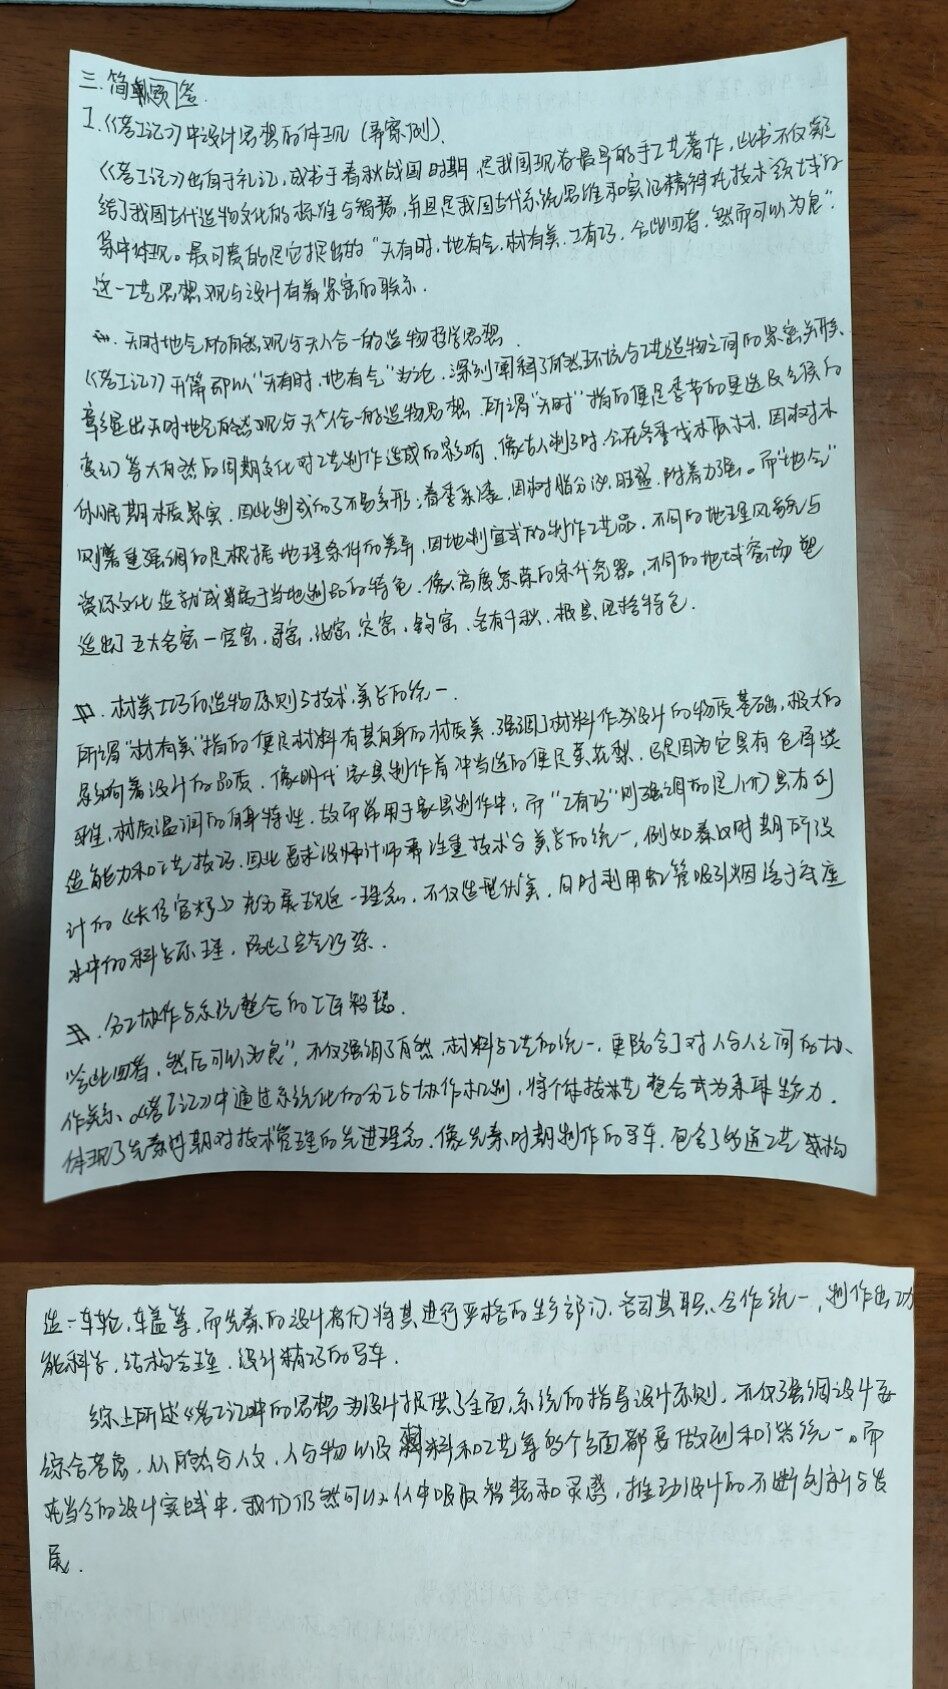 三.简单题答.
1.《考工记》中设计思想的体现（弄案例）.
《考工记》出自于礼记，成书于春秋战国时期，是我国现存最早的手工艺著作，此书不仅凝
结了我国古代造物文化的标准与智慧，并且是我国古代系统思维和实证精神在技术领域的
集中体现。最可贵的是它提出的“天有时，地有气，材有美，工有巧，合此四者，然而可以为良”.
这一工艺思想观与设计有着紧密的联系.
天时地气的自然观与天人合一的造物哲学思想.
《考工记》开篇即以“天有时，地有气”为论，深刻阐释了自然环境与工艺造物之间的紧密关联、
彰显出天时地气自然观与天人合一的造物思想.所谓“天时”指的便是季节的更迭及气候的
变幻等大自然的周期变化对工艺制作造成的影响，像古人制弓时，会在冬季伐木取材，因为树木
休眠期木质紧实，因此制成的弓不易变形；春季采漆，因树脂分泌旺盛，附着力强。而“地气”
则着重强调的是根据地理条件的差异，因地制宜式的制作工艺品.不同的地理风貌与
资源文化造就或归属于当地制品的特色.像高度繁荣的宋代瓷器，不同的地域窑场塑
造出了五大名窑—官窑，哥窑，汝窑，定窑，钧窑，各有千秋，极具风格特色.
材美工巧的造物原则与技术美学的统一.
所谓“材有美”指的便是材料有其自身的材质美.强调了材料作为设计的物质基础，极大的
影响着设计的品质.像明代家具制作首冲当选的便是黄花梨.正是因为它具有色泽淡
雅，材质温润的自身特性.故而常用于家具制作中；而“工有巧”则强调的是人们具有创
造能力和工艺技巧.因此要求设计师要注重技术与美学的统一，例如秦汉时期所设
计的《长信宫灯》充分展现这一理念，不仅造型优美，同时利用虹管吸引烟溶于底座
水中的科学原理，防止了空气污染.
分工协作与系统整合的工匠智慧.
“合此四者，然后可以为良”，不仅强调了自然，材料与工艺的统一，更隐含了对人与人之间的协、
作关系、《考工记》中通过系统化的分工与协作机制，将个体技艺整合成为集体生产力.
体现了先秦时期对技术管理的先进理念，像先秦时期制作的马车，包含了多道工艺及构
造—车轮，车盖等，而先秦的设计者们将其进行严格的生产部门，各司其职、合作统一，制作出功
能科学，结构合理，设计精巧的马车.
综上所述《考工记》中的思想为设计提供了全面，系统的指导设计原则，不仅强调设计要
综合考虑，从自然与人文，人与物以及材料和工艺等多个方面都要做到和谐统一。而
在当今的设计实践中，我们仍然可以从中吸取智慧和灵感，推动设计的不断创新与发
展.